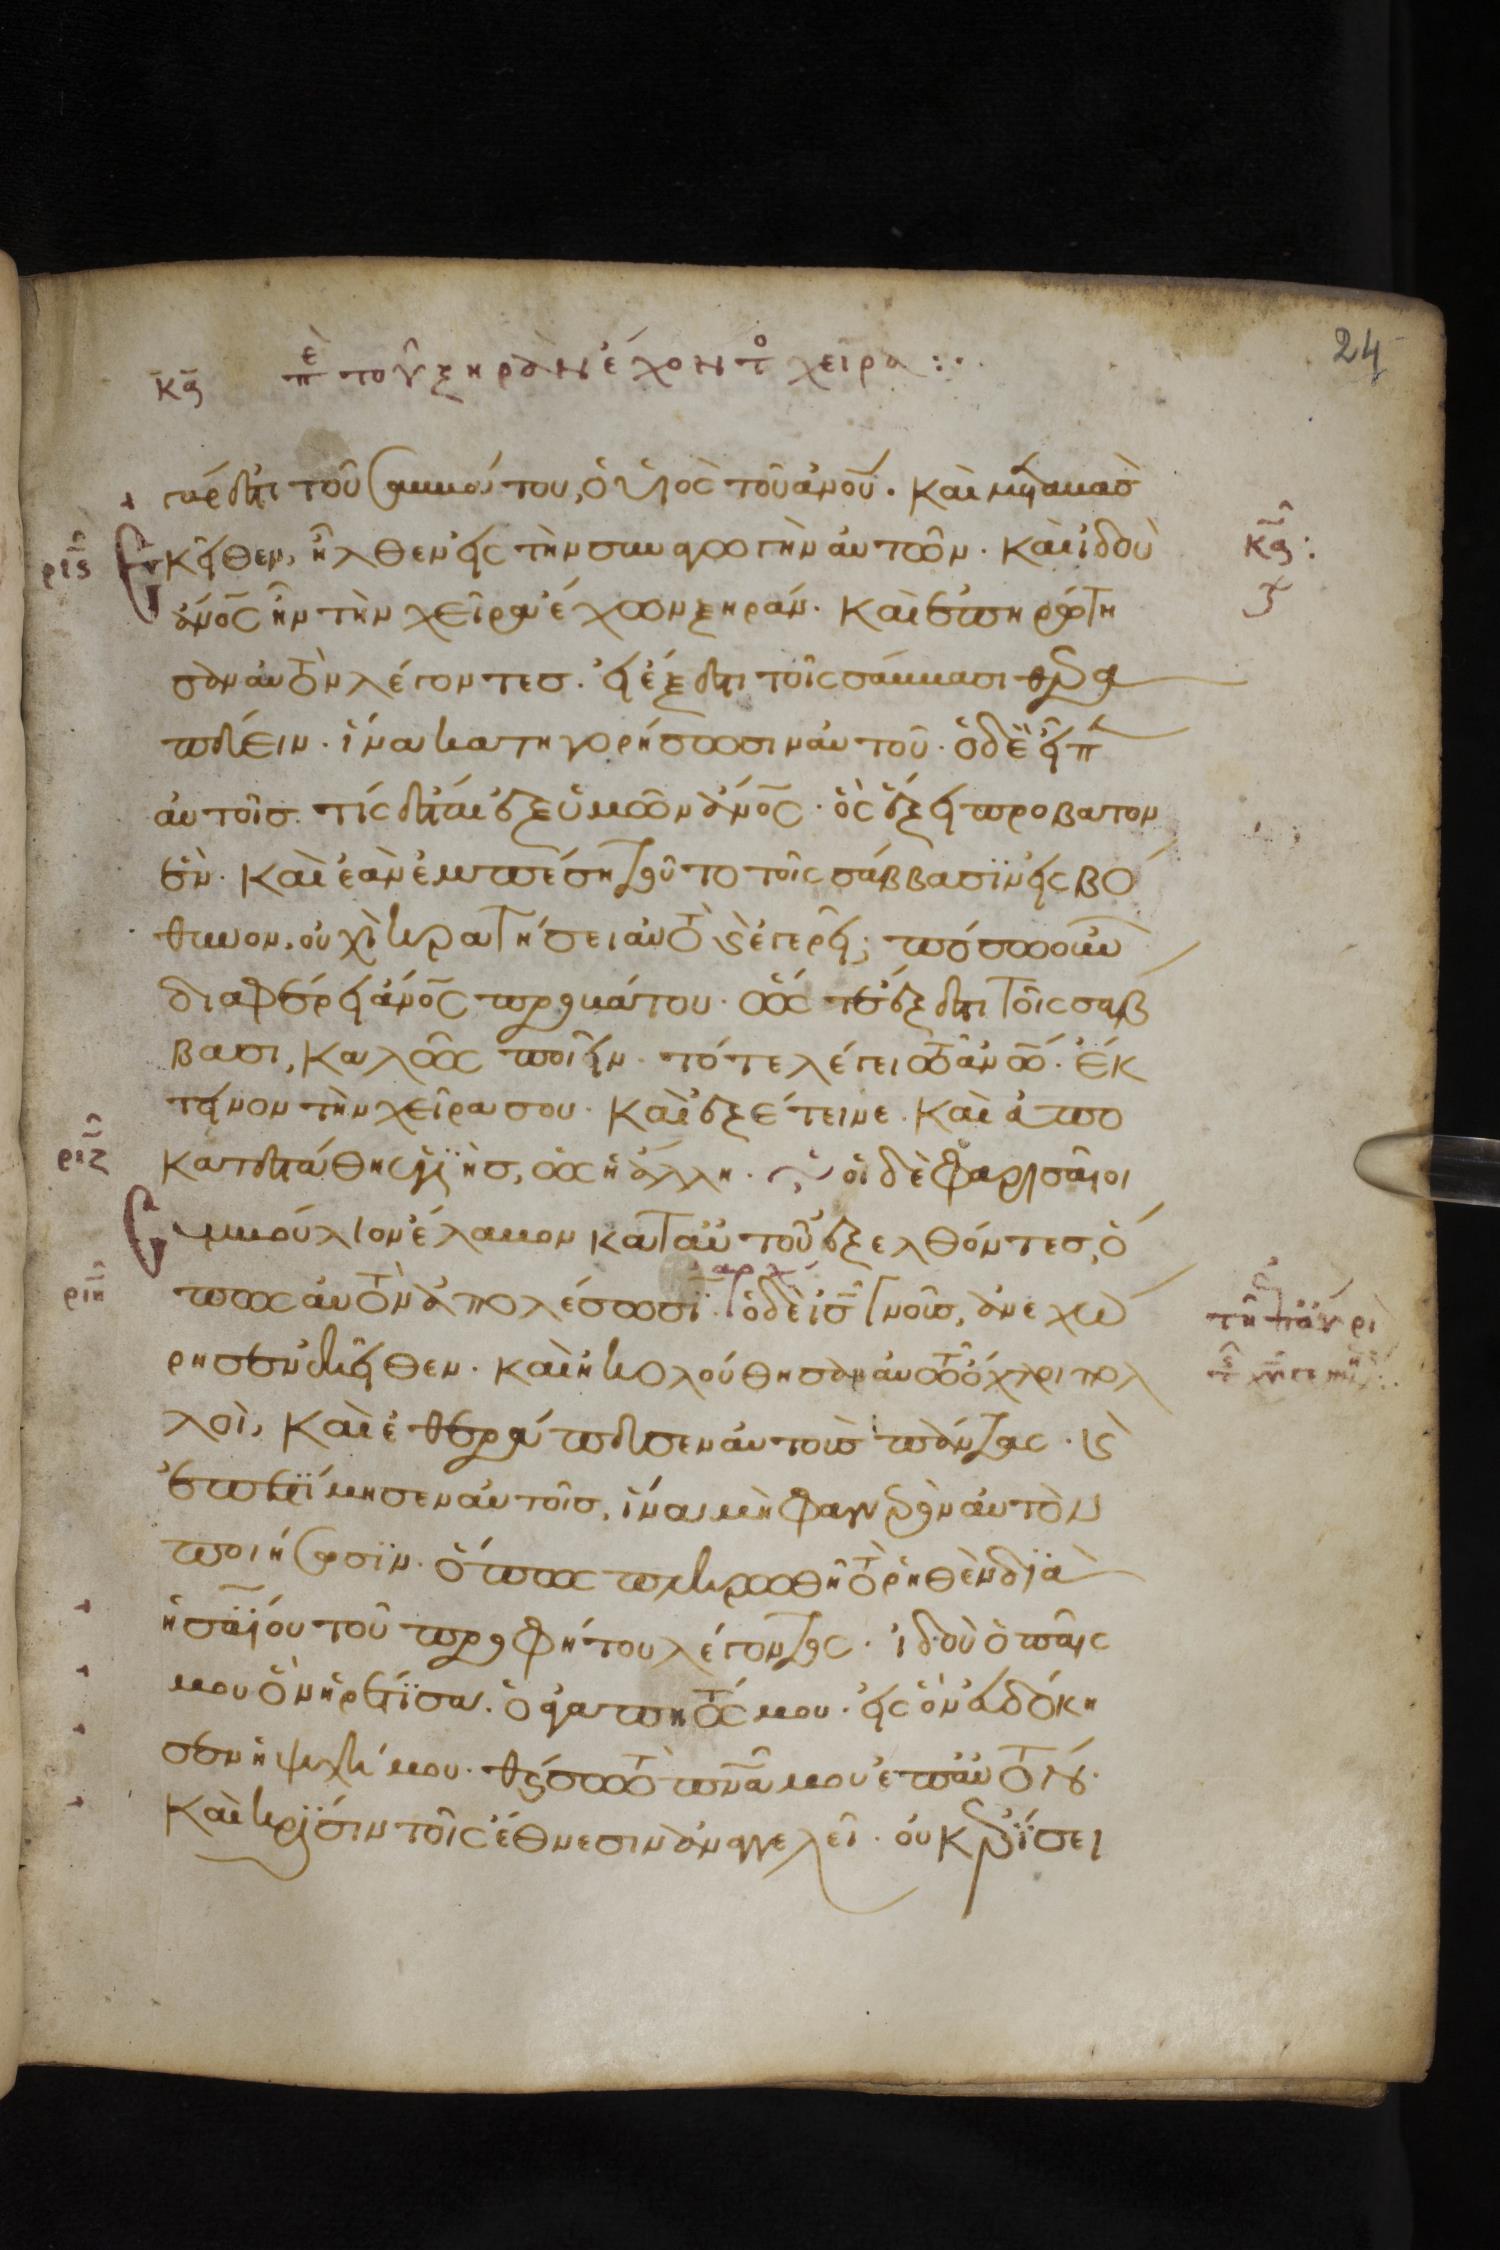 κα περὶ τοῦ ξηρὰν ἔχοντος χεῖρα :·
24
γάρ ἐστι τοῦ σαββάτου, ὁ υἱὸς τοῦ ἀνου. καὶ μεταβὰς
ριϛ ἐκεῖθεν, ἦλθεν εἰς τὴν συναγωγὴν αὐτῶν. καὶ ἰδοὺ
κα :
ἄνος ἦν τὴν χεῖρα ἔχων ξηράν. καὶ ἐπηρώτη
σαν αὐτὸν λέγοντες. εἰ ἔξεστι τοῖς σάββασι θερα
πεύειν. ἵνα κατηγορήσωσιν αὐτοῦ. ὁ δὲ εἶπεν
αὐτοῖς. τίς ἔσται ἐξ ὑμῶν ἄνος. ὃς ἕξει προβατον
ἕν. καὶ ἐὰν ἐμπέσῃ τοῦτο τοῖς σάββασιν εἰς βό
θυνον, οὐχὶ κρατήσει αὐτὸ καὶ ἐγερεῖ; πόσω οὖν
διαφέρει ἄνος προβάτου. ὥστε ἔξεστι τοῖς σαβ
βασι, καλῶς ποιεῖν. τότε λέγει τῶ ἀνω. ἔκ
τεινον τὴν χεῖρα σου. καὶ ἐξέτεινε. καὶ ἀπο
ριζ κατεστάθη ὑγιὴς, ὡς ἡ ἄλλη. οἱ δὲ φαρισαῖοι
συμβούλιον ἔλαβον κατ αὐτοῦ ἐξελθόντες, ὅ
ριη πως αὐτὸν ἀπολέσωσι. αρχ ὁ δὲ ις γνοὺς, ἀνεχώ
ρησεν ἐκεῖθεν. καὶ ἠκολούθησαν αὐτῶ ὄχλοι πολ
λοὶ, καὶ ἐθεράπευσεν αὐτοὺς πάντας. καὶ
ἐπετίμησεν αὐτοῖς, ἵνα μὴ φανερὸν αὐτὸν
ποιήσωσιν. ὅπως πληρωθῆ τὸ ῥηθὲν διὰ
ἡσαΐου τοῦ προφήτου λέγοντος. ἰδοὺ ὁ παῖς
μου ὃν ἡρέτισα. ὁ ἀγαπητός μου. εἰς ὃν εὐδόκη
σεν ἡ ψυχή μου. θήσω τὸ πνα μου ἐπ αὐτόν.
καὶ κρίσιν τοῖς ἔθνεσιν ἀπαγγελεῖ. οὐκ ἐρίσει